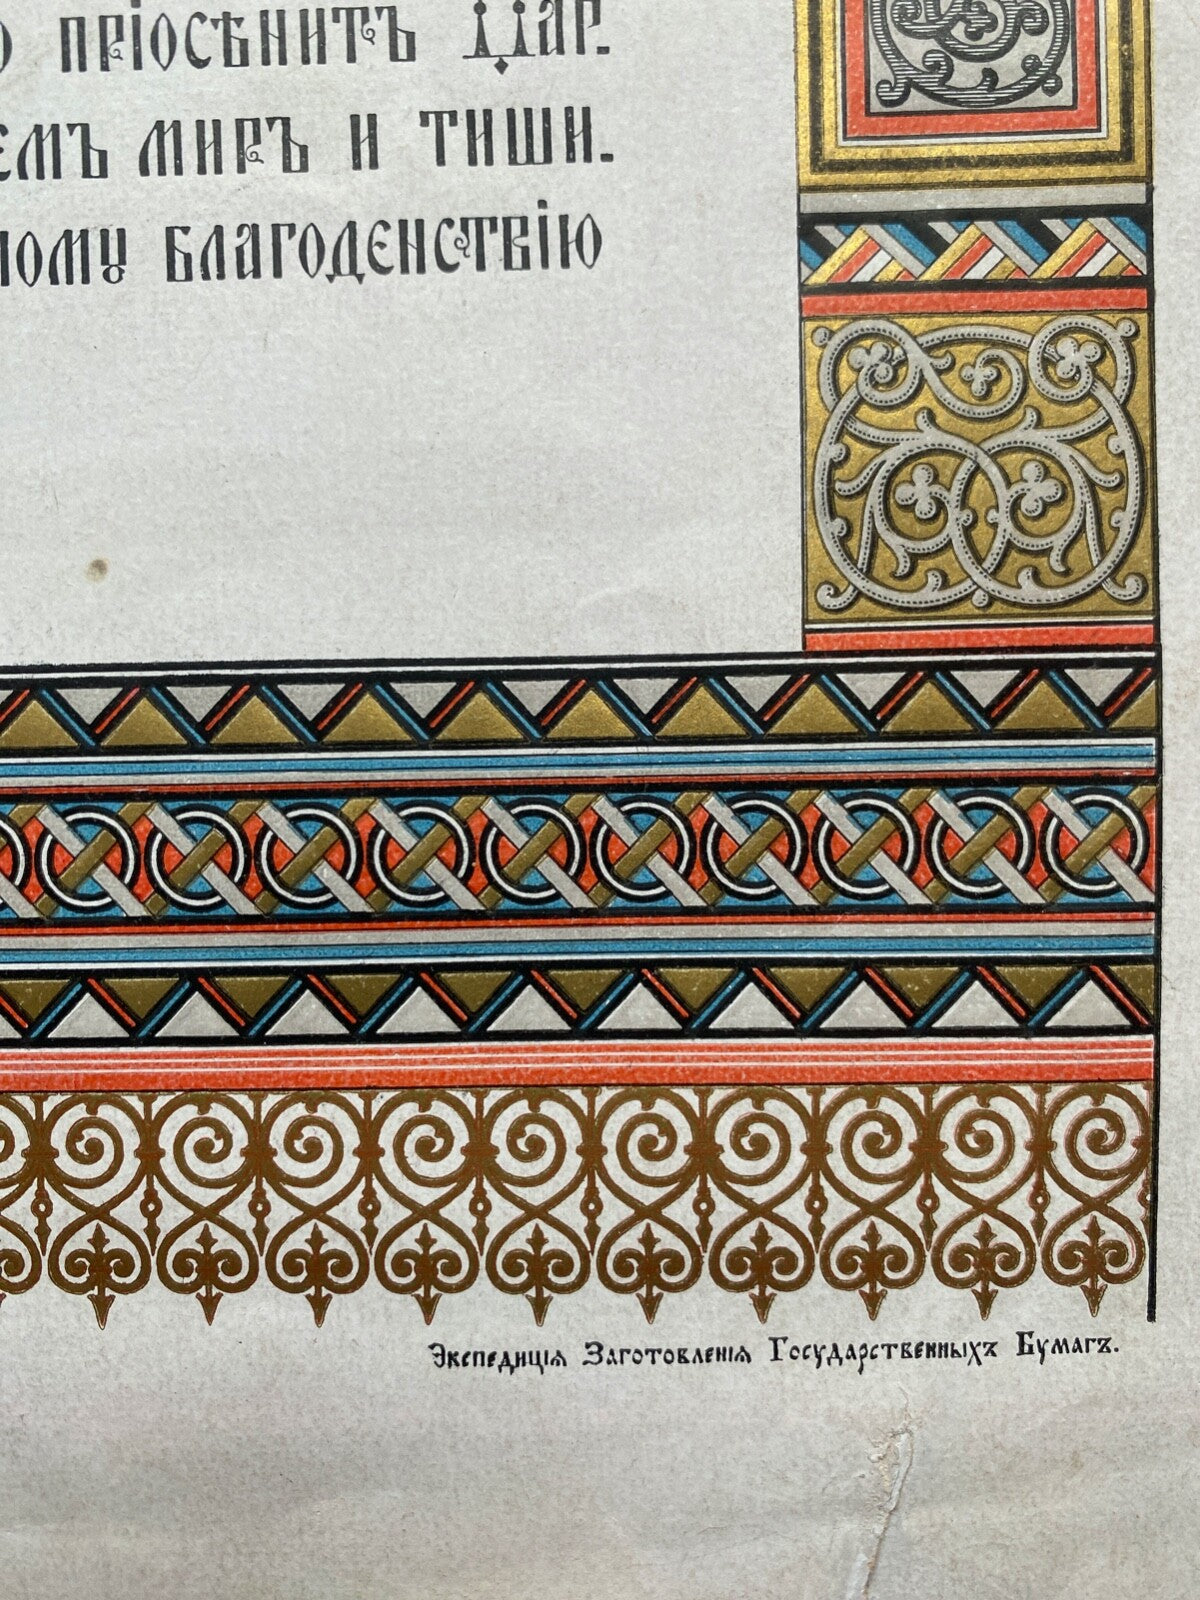 пріосѣнитъ Цар-
миръ и тиши-
благоденствію
Экспедиція Заготовленія Государственныхъ Бумагъ.